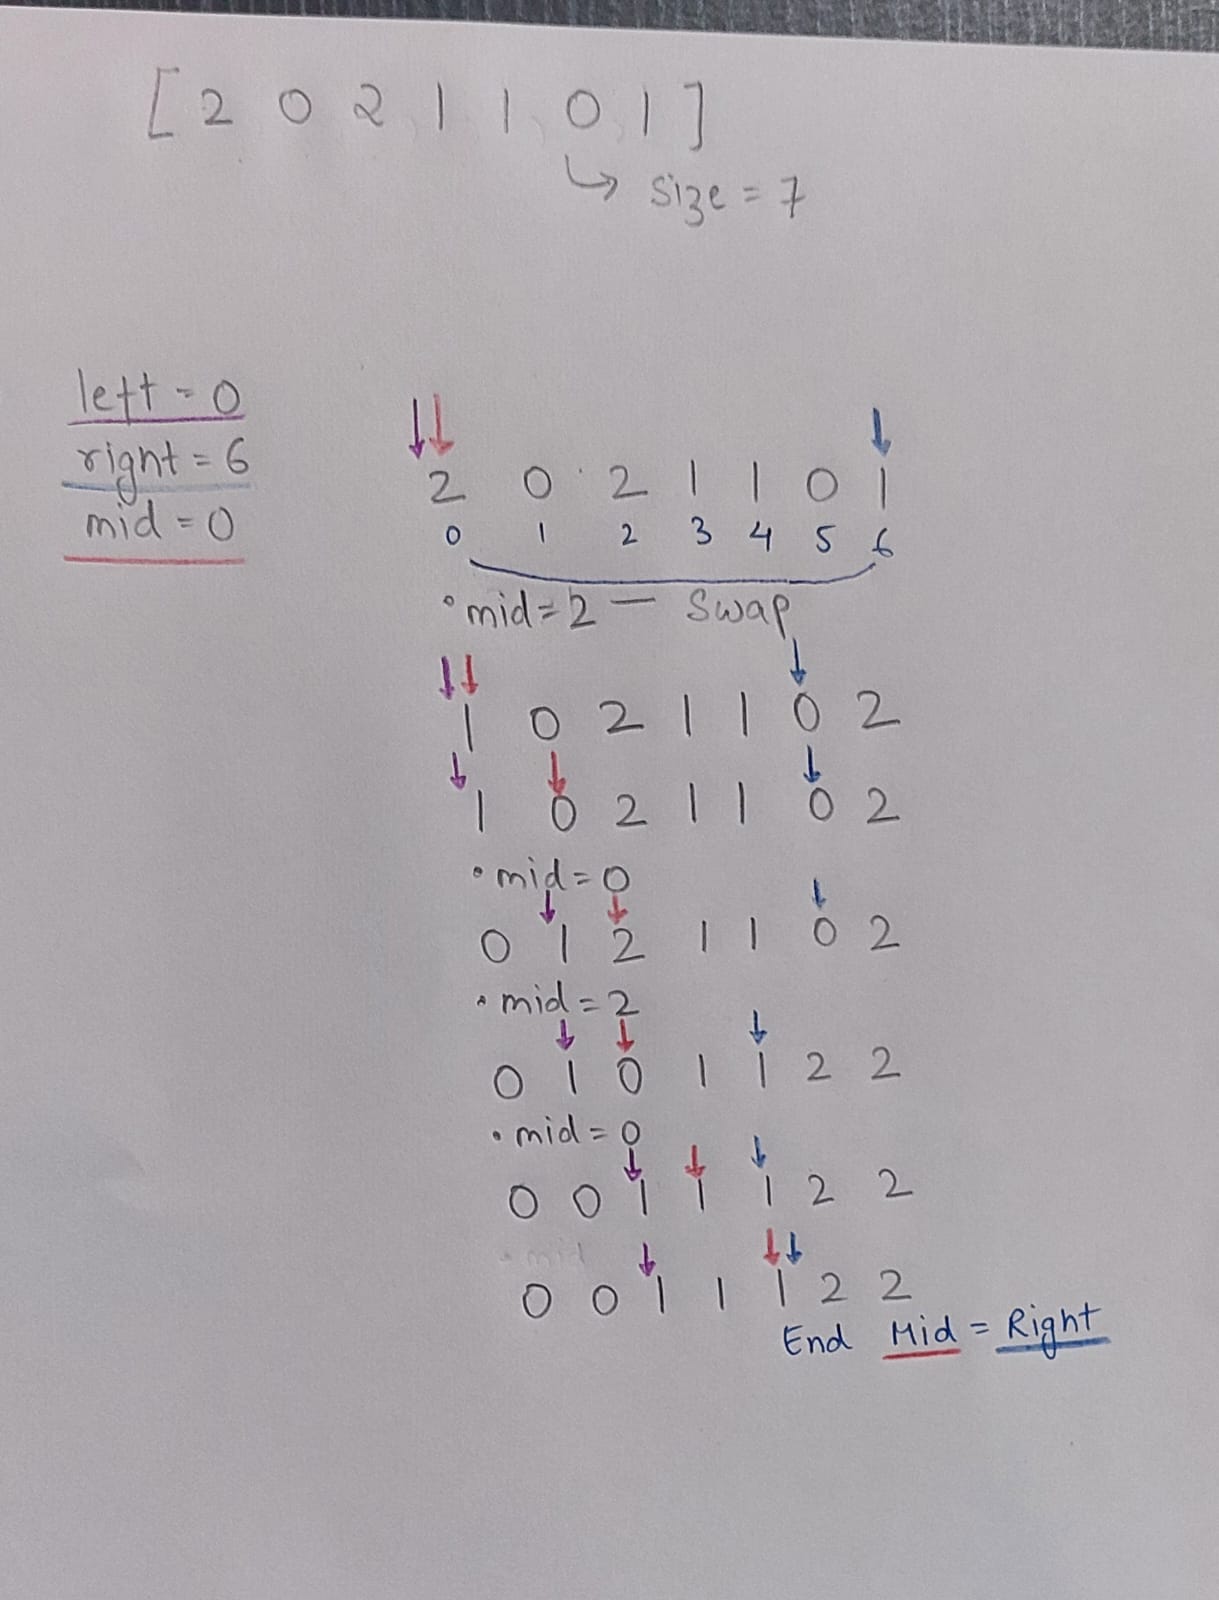 [ 2 0 2 1 1 0 1 ]
↳ size = 7
left = 0
right = 6
mid = 0
2 0 2 1 1 0 1
0 1 2 3 4 5 6
• mid = 2 — Swap
1 0 2 1 1 0 2
1 0 2 1 1 0 2
• mid = 0
0 1 2 1 1 0 2
• mid = 2
0 1 0 1 1 2 2
• mid = 0
0 0 1 1 1 2 2
• mid
0 0 1 1 1 2 2
End Mid = Right